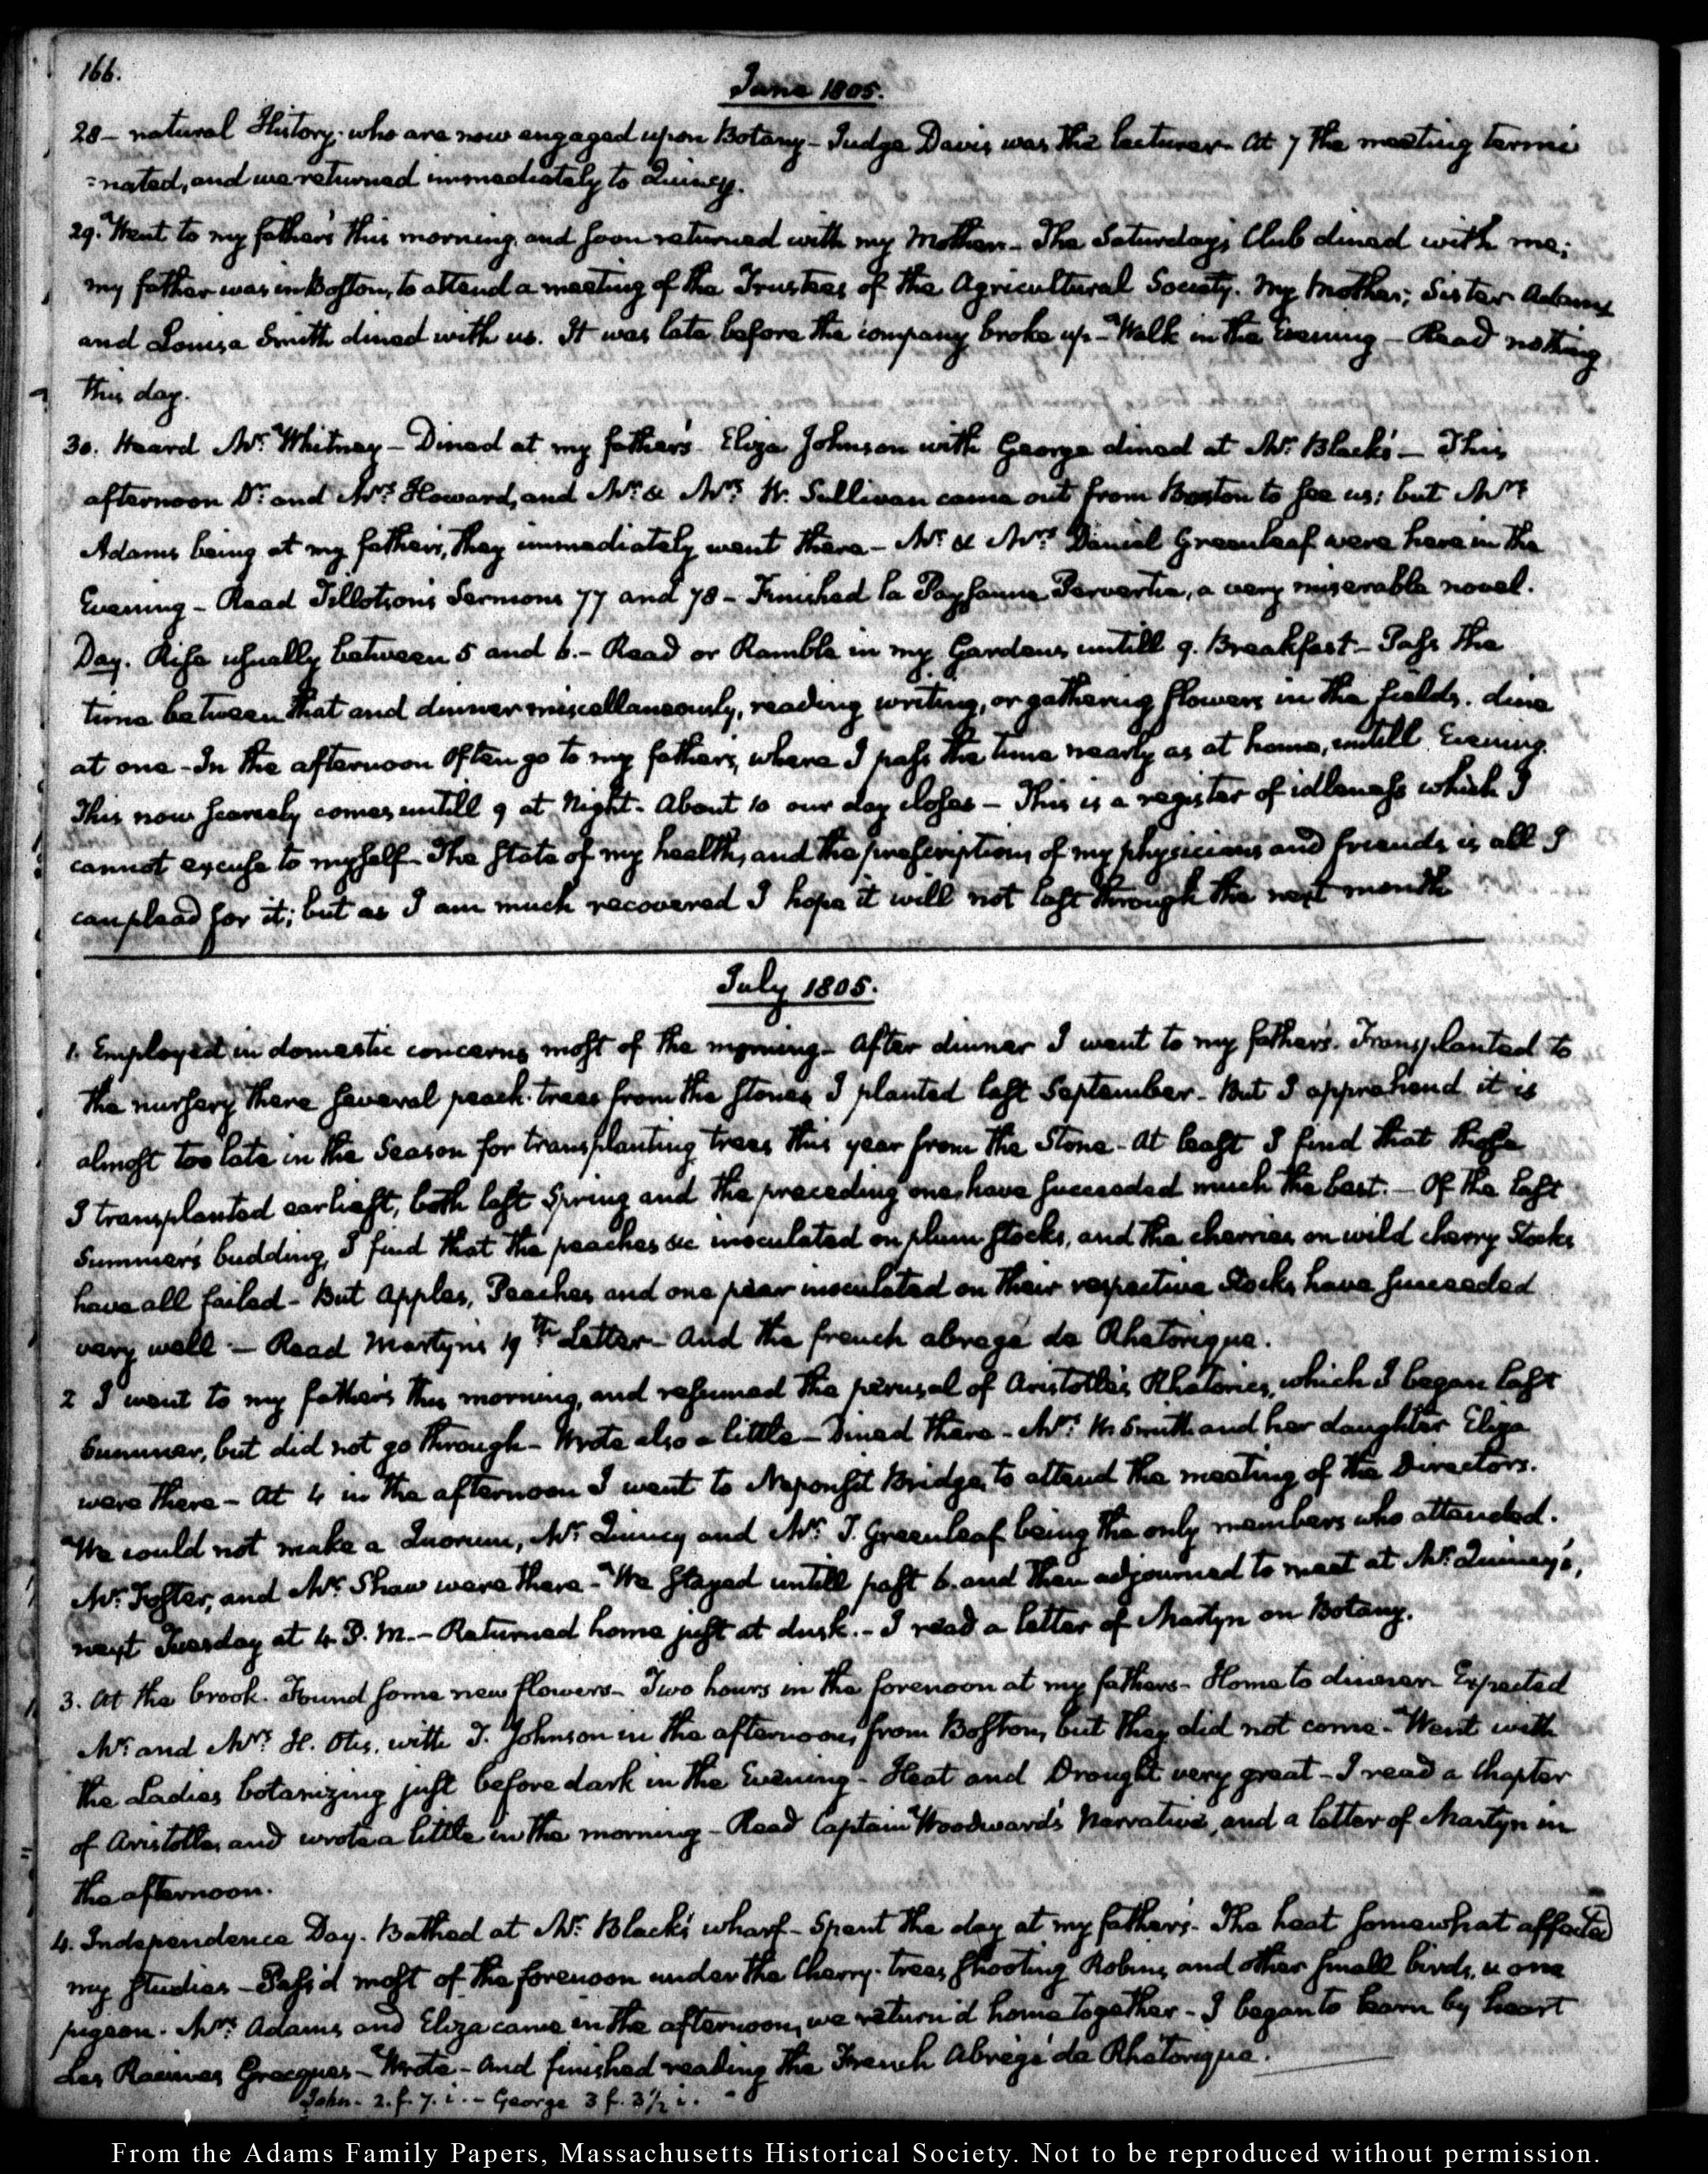 166.
June 1805.
28 - natural History; who are now engaged upon Botany - Judge Davis was the lecturer. At 7 the meeting termi
=nated, and we returned immediately to Quincy.
29. Went to my father's this morning, and soon returned with my Mother - The Saturday's Club dined with me;
my father was in Boston, to attend a meeting of the Trustees of the Agricultural Society. My Mother, Sister Adams
and Louisa Smith dined with us. It was late before the company broke up - Walk in the Evening - Read nothing
this day.
30. Heard Mr. Whitney - Dined at my father's. Eliza Johnson with George dined at Mr. Black's - This
afternoon Dr. and Mrs. Howard, and Mr. & Mrs. W. Sullivan came out from Boston to see us; but Mrs.
Adams being at my father's, they immediately went there - Mr. & Mrs. Daniel Greenleaf were here in the
Evening - Read Tillotson's Sermons 77 and 78 - Finished la Paysanne Pervertie, a very miserable novel.
Day. Rise usually between 5 and 6. - Read or Ramble in my Gardens untill 9. Breakfast - Pass the
time between that and dinner miscellaneously, reading writing, or gathering flowers in the fields. dine
at one - In the afternoon often go to my father's, where I pass the time nearly as at home, untill Evening.
This now scarcely comes untill 9 at Night. About 10 our day closes - This is a register of idleness which I
cannot excuse to myself - The state of my health, and the prescriptions of my physicians and friends is all I
can plead for it; but as I am much recovered I hope it will not last through the next month
July 1805.
1. Employed in domestic concerns most of the morning - After dinner I went to my father's. Transplanted to
the nursery there several peach-trees from the stones I planted last September - But I apprehend it is
almost too late in the Season for transplanting trees this year from the Stone - At least I find that those
I transplanted earliest, both last Spring and the preceding one, have succeeded much the best. - Of the last
Summer's budding, I find that the peaches &c inoculated on plum stocks, and the cherries on wild cherry Stocks
have all failed - But Apples, Peaches and one pear inoculated on their respective Stocks have succeeded
very well - Read Martyn's 19th Letter - And the french abregé de Rhetorique.
2 I went to my father's this morning, and resumed the perusal of Aristotle's Rhetorics, which I began last
Summer, but did not go through - Wrote also a little - Dined there - Mrs. W. Smith and her daughter Eliza
were there - At 4 in the afternoon I went to Neponset Bridge, to attend the meeting of the Directors.
We could not make a Quorum, Mr. Quincy and Mr. T. Greenleaf being the only members who attended.
Mr. Foster, and Mr. Shaw were there - We stayed untill past 6. and then adjourned to meet at Mr. Quincy's,
next Tuesday at 4 P.M. - Returned home just at dusk. - I read a letter of Martyn on Botany.
3. At the brook. Found some new flowers - Two hours in the forenoon at my father's - Home to dinner. Expected
Mr. and Mrs. H. Otis, with T. Johnson in the afternoon, from Boston, but they did not come - Went with
the Ladies botanizing just before dark in the Evening - Heat and Drought very great - I read a Chapter
of Aristotle, and wrote a little in the morning - Read Captain Woodward's Narrative, and a letter of Martyn in
the afternoon.
4. Independence Day. Bathed at Mr. Black's wharf - Spent the day at my father's. The heat somewhat affected
my studies - Pass'd most of the forenoon under the Cherry-trees, shooting Robins, and other small birds, & one
pigeon. Mrs. Adams and Eliza came in the afternoon, we return'd home together - I began to learn by heart
Les Racines Grecques - Wrote - And finished reading the French Abregé de Rhetorique.
John - 2.f. 7. i. - George 3 f. 3½ i.
From the Adams Family Papers, Massachusetts Historical Society. Not to be reproduced without permission.